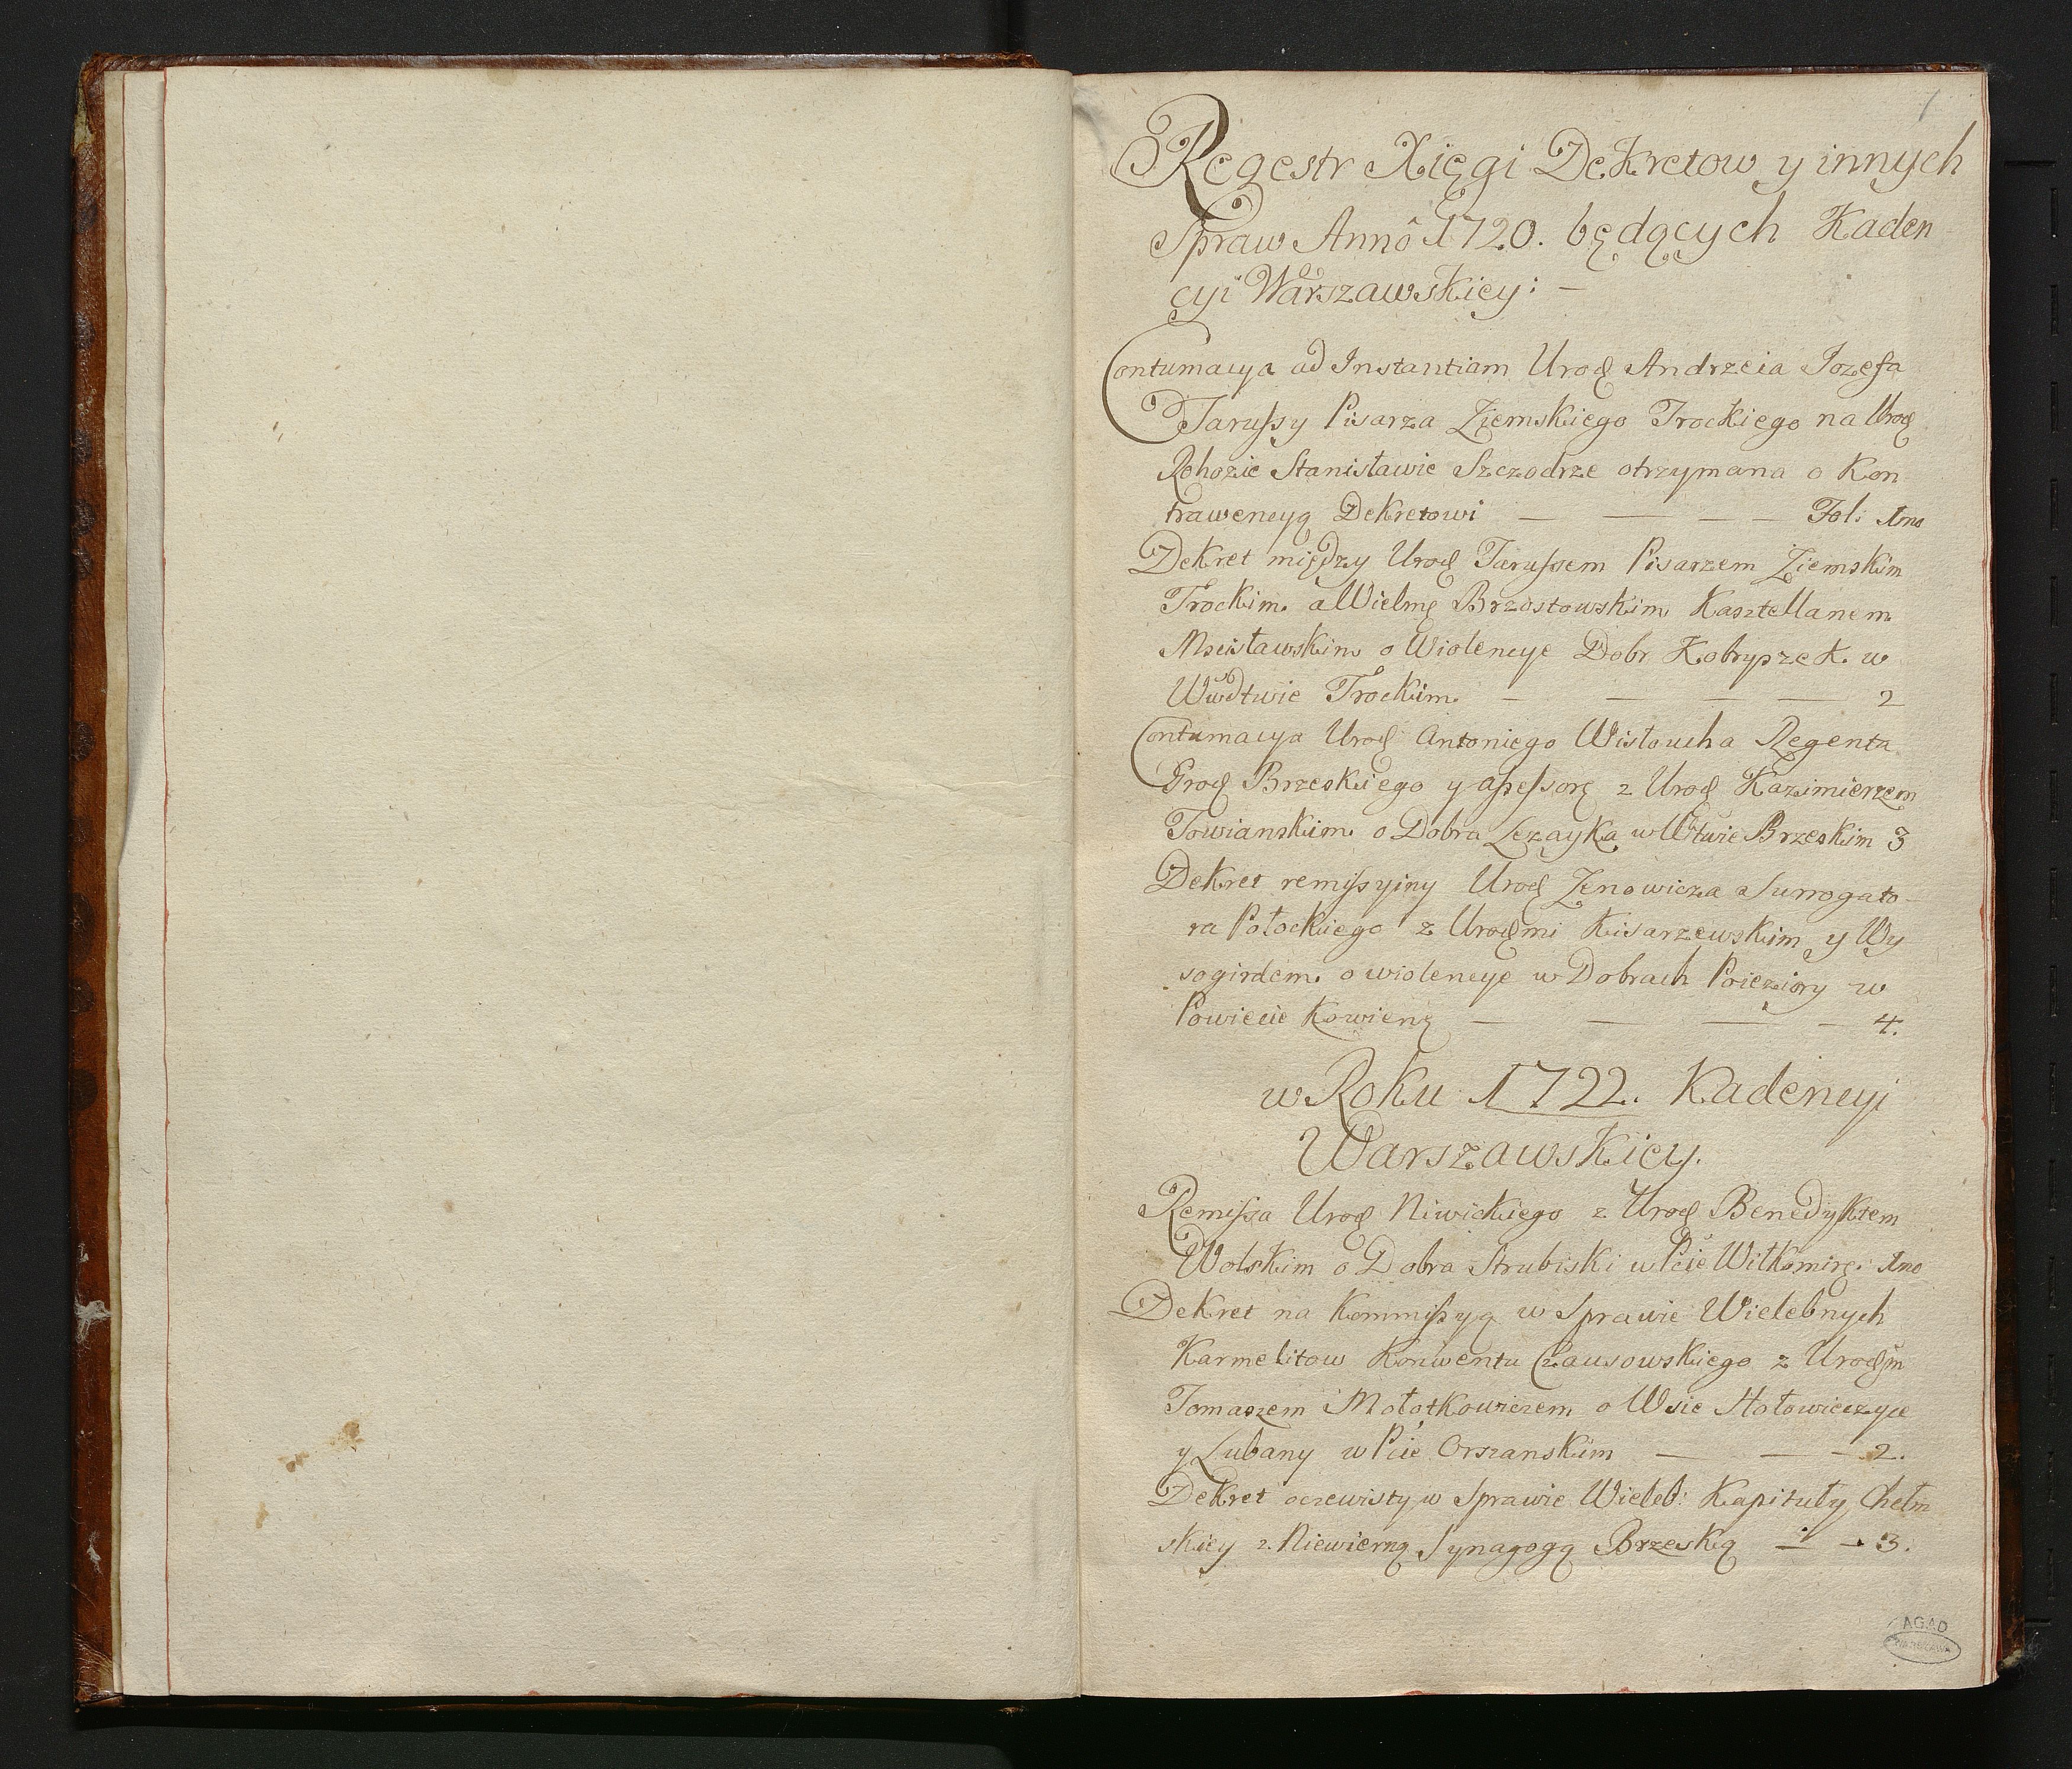 1
Regestr Xięgi Dekretow y innych
Spraw Annô 1720. będących Kaden
cyi Warszawskiey: —
Contumacya ad Instantiam Urod Andrzeia Jozefa
Tarussy Pisarza Ziemskiego Trockiego na Urod
Rohozie Stanisławie Szczodrze otrzymana o Kon
trawencyą Dekretowi — — — — Fol: 1mo
Dekret między Urod Tarussem Pisarzem Ziemskim
Trockim a Wielmę Brzostowskim Kasztellanem
Mscisławskim o Wiolencye Dobr w
Wwdtwie Trockim — — — — 2
Contumacya Urod Antoniego Wisłoucha Regenta
Grod Brzeskiego y assessorę z Urod Kazimierzem
Towianskim o Dobra Lezayka w Wtwie Brzeskim 3
Dekret remissyiny Urod Zenowicza Surrogato-
ra Połockiego z Urodmi Kisarzewskim y Wy
sogirdem o wiolencye w Dobrach Poieziory w
Powiecie Kowienę — — — — 4.
w Roku 1722. Kadencyi
Warszawskiey.
Remissa Urod Niwickiego z Urod Benedyktem
Wolskim o Dobra Strubiski w Pcie Wiłkomirę: 1mo
Dekret na Kommissyą w Sprawie Wielebnych
Karmelitow Konwentu Czausowskiego z Urodm
Tomaszem Mołotkowiczem o Wsie Hołowiczyce
y Lubany w Pcie Orszanskim — — — 2.
Dekret oczewisty w Sprawie Wieleb: Kapituły Chełm
skiey z Niewierną Synagogą Brzeską — — 3.
AGAD
WARSZAWA